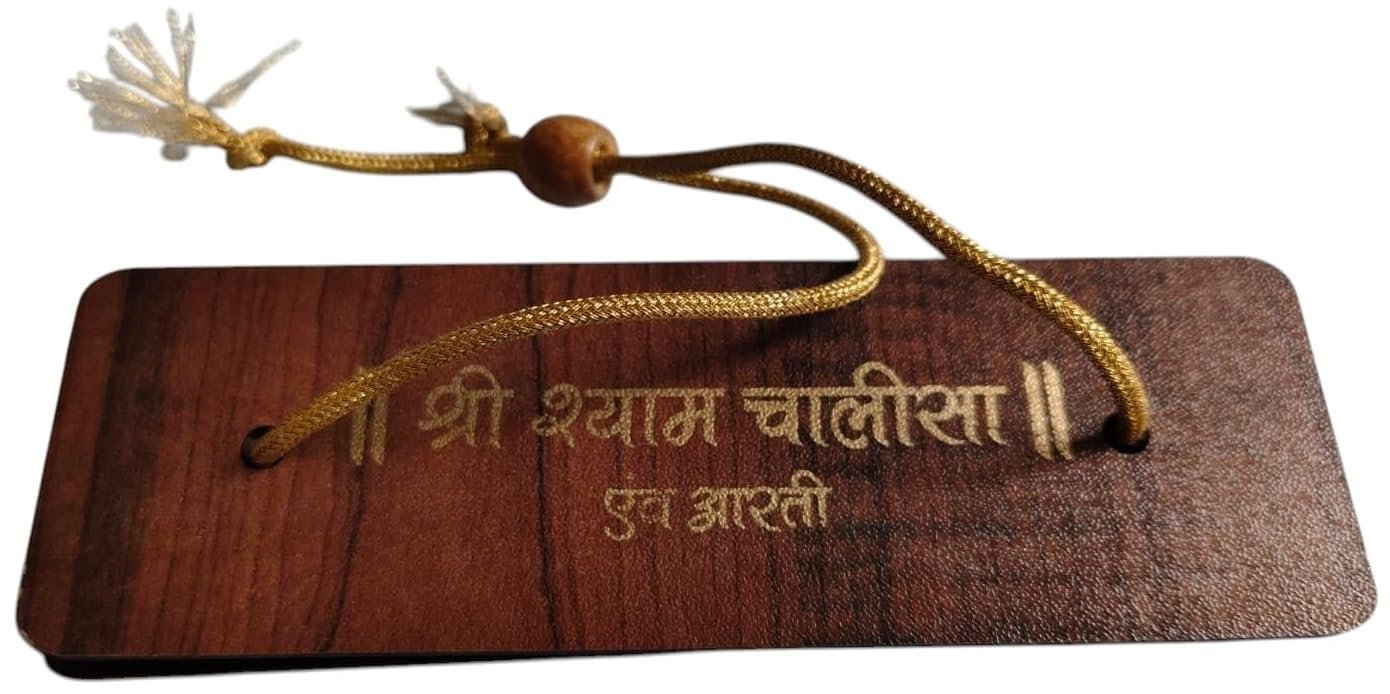 ॥ श्री श्याम चालीसा ॥
एंव आरती